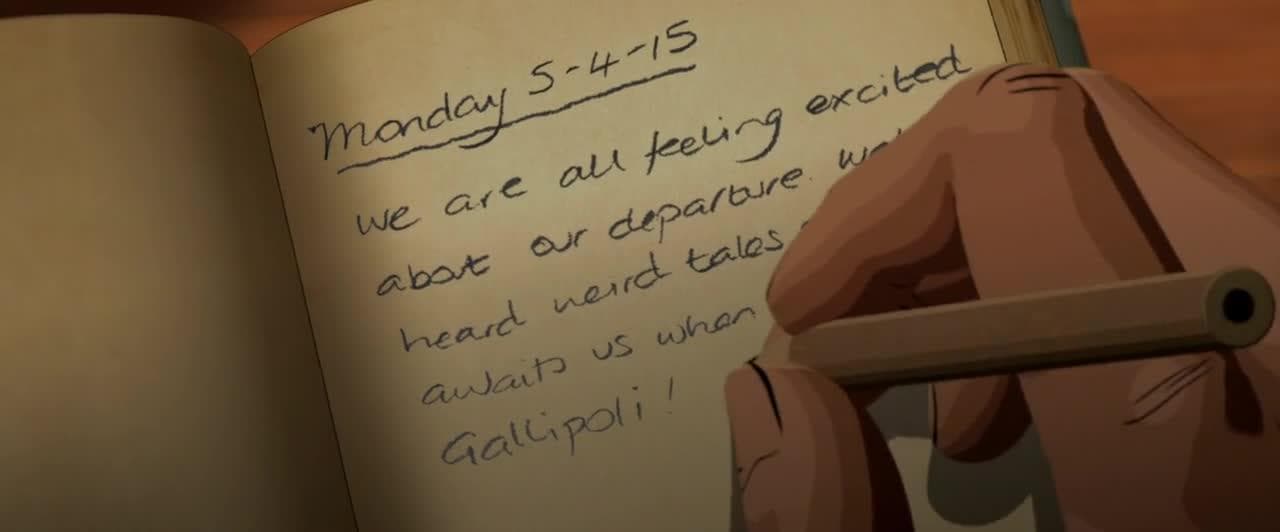 Monday 5-4-15
we are all feeling excited
about our departure. we
heard weird tales
awaits us when
Gallipoli!